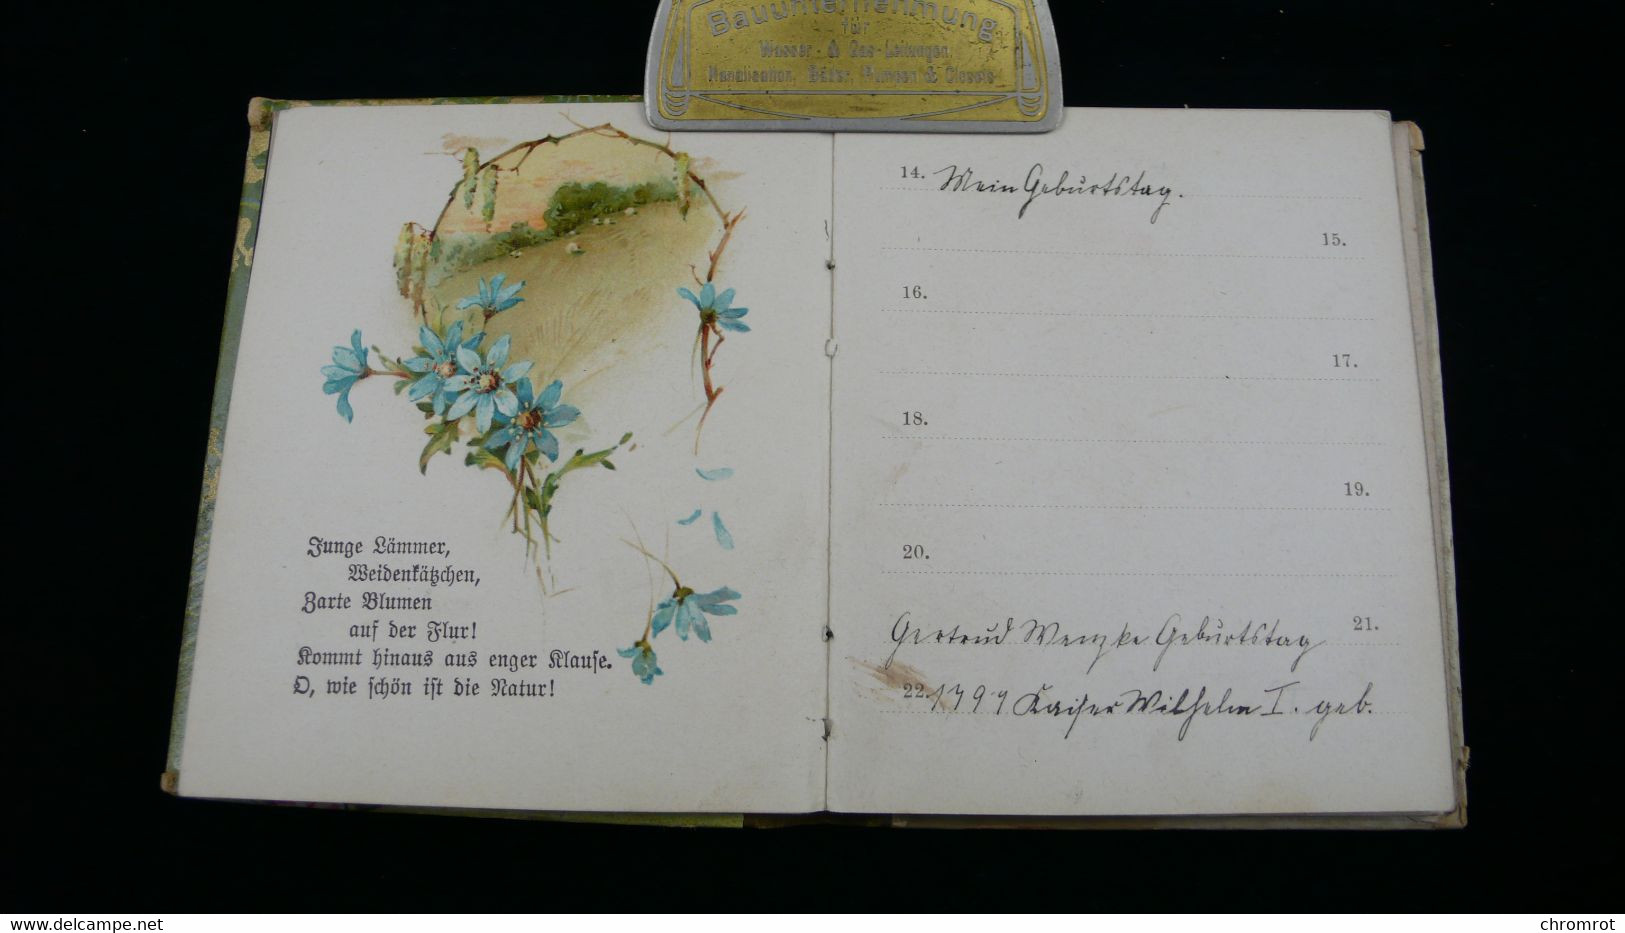 Bauunternehmung
für
Wasser- & Gas-Leitungen,
Kanalisation, Bäder, Pumpen & Closets
Junge Lämmer,
Weidenkätzchen,
Zarte Blumen
auf der Flur!
Kommt hinaus aus enger Klause.
O, wie schön ist die Natur!
14. Mein Geburtstag.
15.
16.
17.
18.
19.
20.
Gertrud Wenzke Geburtstag 21.
22. 1797 Kaiser Wilhelm I. geb.
www.delcampe.net
chromrot